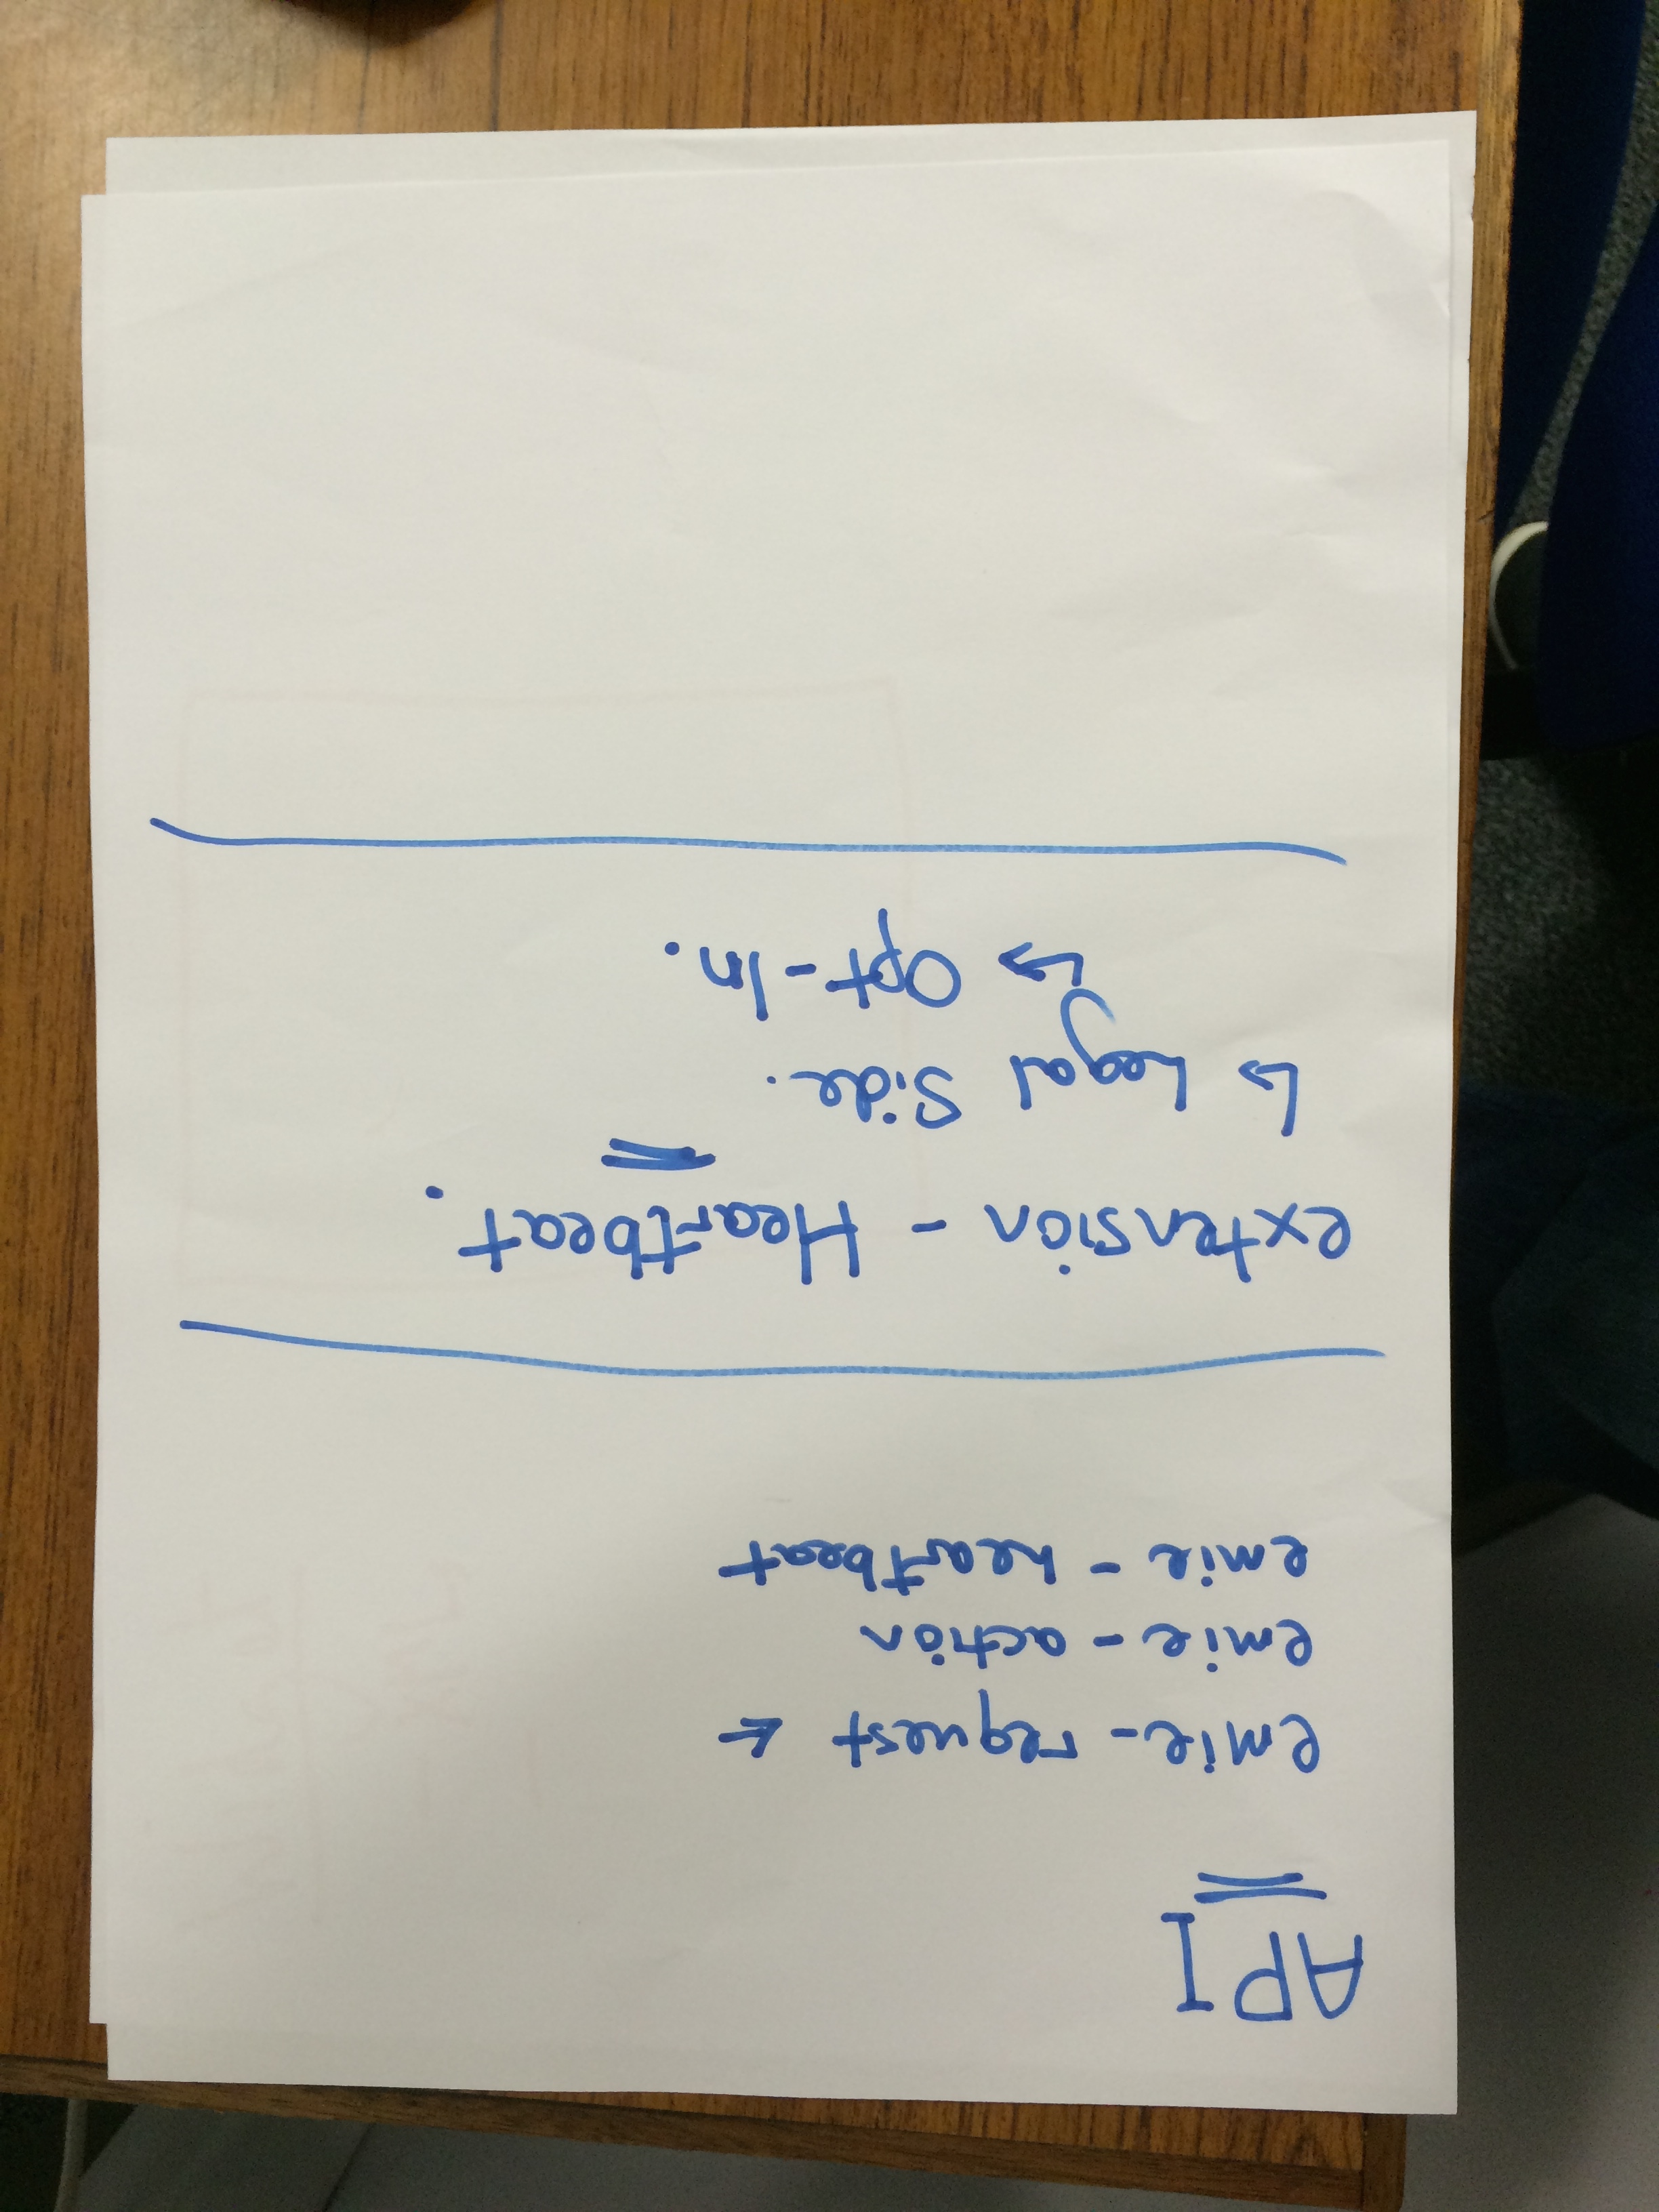 API
emie - request ←
emie - action
emie - heartbeat
extension - Heartbeat.
↳ Legal Side.
↳ Opt-In.